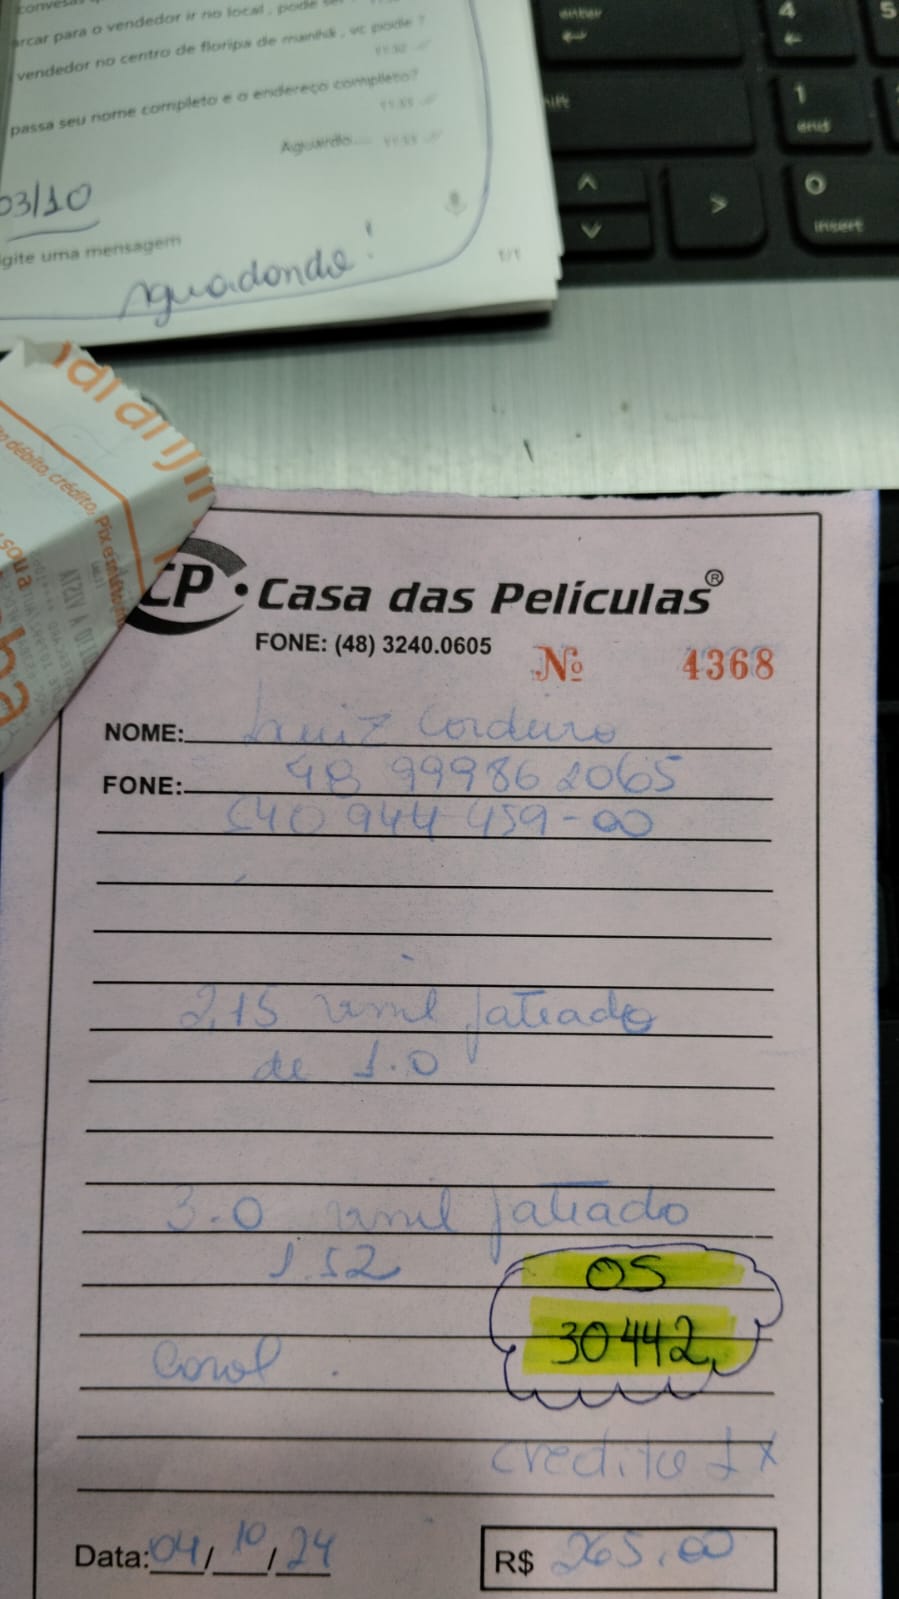 conversa
arcar para o vendedor ir no local , pode se
vendedor no centro de floripa de manhã , vc pode ?
11:52
passa seu nome completo e o endereço completo?
11:53
Aguardo.... 11:53
03/10
igite uma mensagem
Aguadondo!
1/1
enter
4
5
1
end
0
insert
débito, crédito, Pix
sou a
CP • Casa das Películas®
FONE: (48) 3240.0605
Nº 4368
NOME: Luiz Cordeiro
FONE: 48 999862065
540 944 459-00
2,15 vinil jateado
de 1.0
3.0 vinil jateado
1.52
OS
30442
Carol .
credito 1x
Data: 04/10/24
R$ 265.00